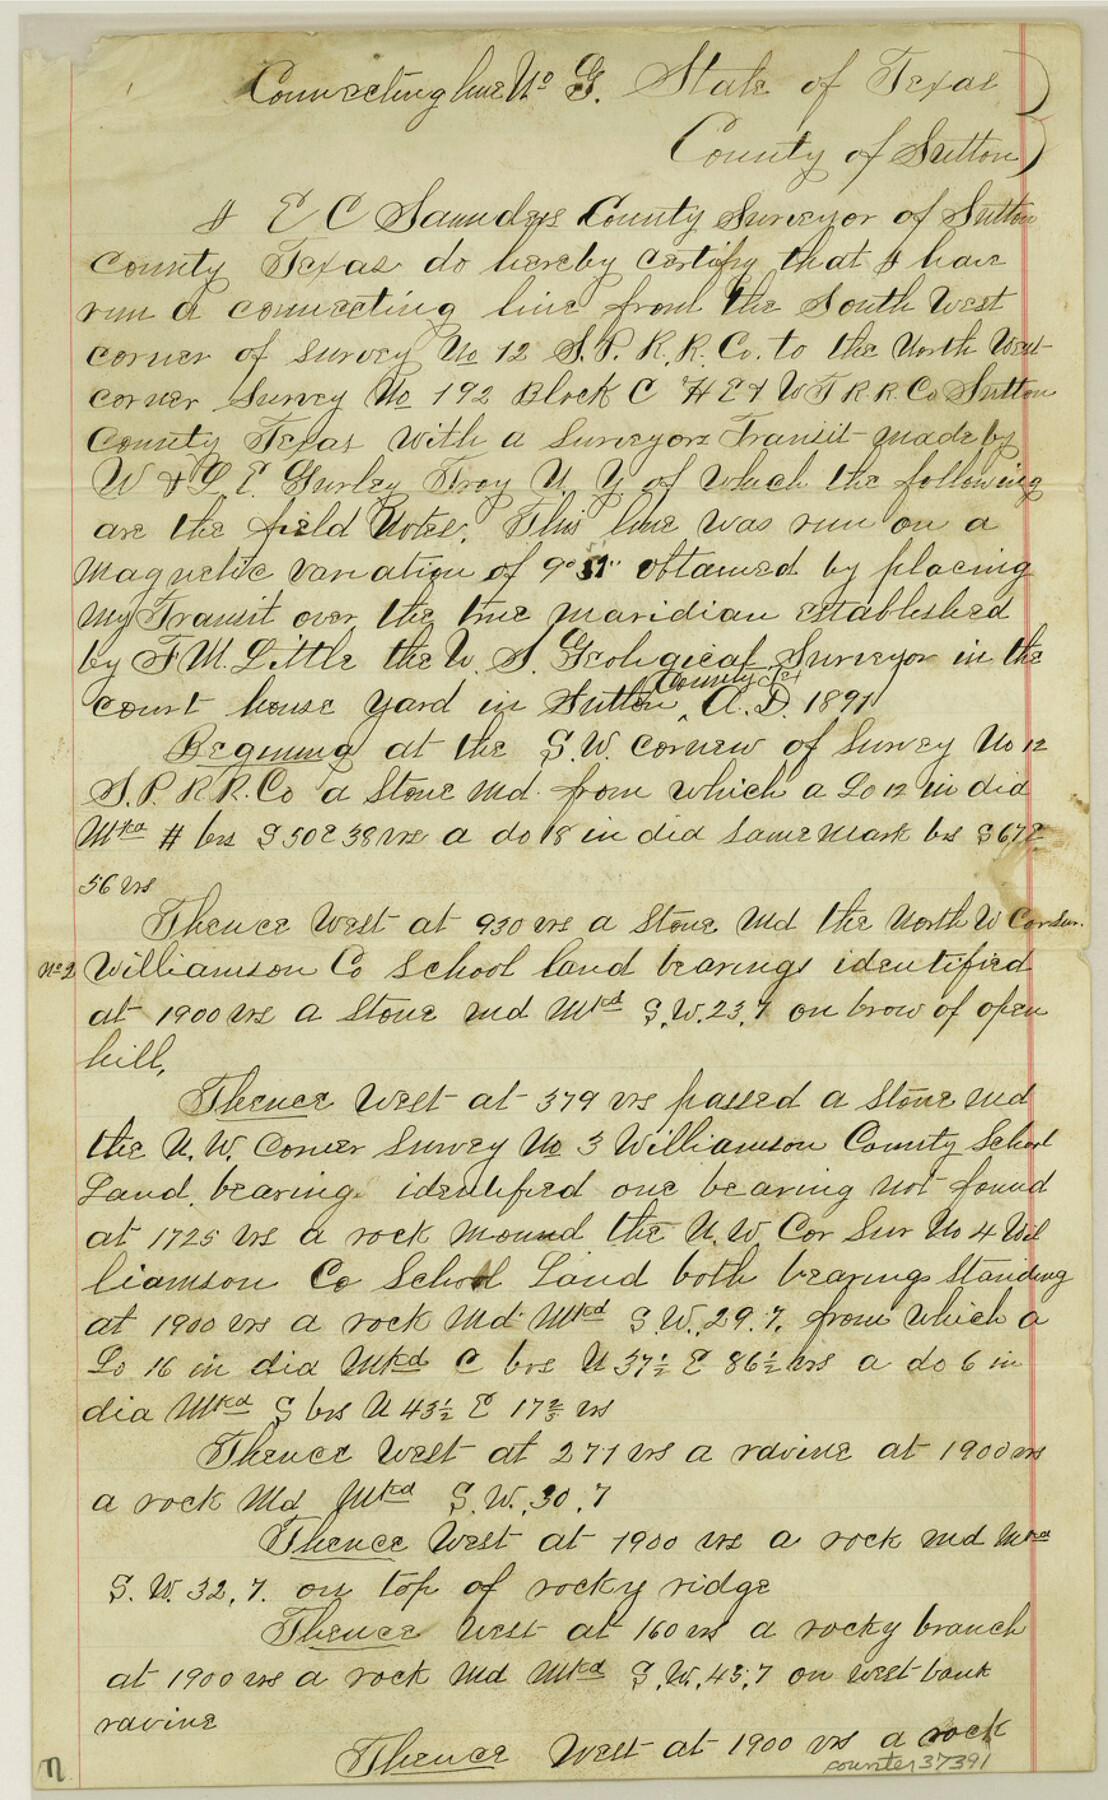 Connecting line No G. State of Texas )
County of Sutton )
I E C Saunders County Surveyor of Sutton
County Texas do hereby certify that I have
run a connecting line from the South West
corner of survey No 12 S.P. R.R. Co. to the North West
corner Survey No 192 Block C H E & W T R.R. Co Sutton
County Texas with a surveyors Transit made by
W & L. E. Gurley Troy N. Y. of which the following
are the field Notes. This line was run on a
Magnetic variation of 9° 51" obtained by placing
my Transit over the true maridian established
by F M. Little the U. S. Geological Surveyor in the
County Tex
court house yard in Sutton ‸ A. D. 1891
Begining at the S.W. cornew of survey No 12
S.P. R R. Co a Stone Md. from which a Lo 12 in did
Mkd # brs S 50 E 38 vrs a do 18 in did same mark brs S 67 E
56 vrs
Thence West at 930 vrs a Stone Md the North W Cor Sur.
No 2 Williamson Co School land bearings identified
at 1900 vrs a Stone md Mkd S.W. 23.7 on brow of open
hill,
Thence West at 379 vrs passed a Stone md
the N. W. Corner Survey No 3 Williamson County School
Land, bearing identified one bearing not found
at 1725 vrs a rock mound the N. W. Cor Sur No 4 Wil
liamson Co School Land both bearings standing
at 1900 vrs a rock Md Mkd S.W. 29.7. from which a
Lo 16 in dia Mkd C brs N 37½ E 86½ vrs a do 6 in
dia Mkd S brs N 43½ E 17⅖ vrs
Thence West at 277 vrs a ravine at 1900 vrs
a rock Md Mkd S.W. 30.7
Thence West at 1900 vrs a rock md Mkd
S.W. 32.7. on top of rocky ridge
Thence West at 160 vrs a rocky branch
at 1900 vrs a rock Md Mkd S.W. 43.7 on west bank
ravine
Thence West at 1900 vrs a rock
counter 37391